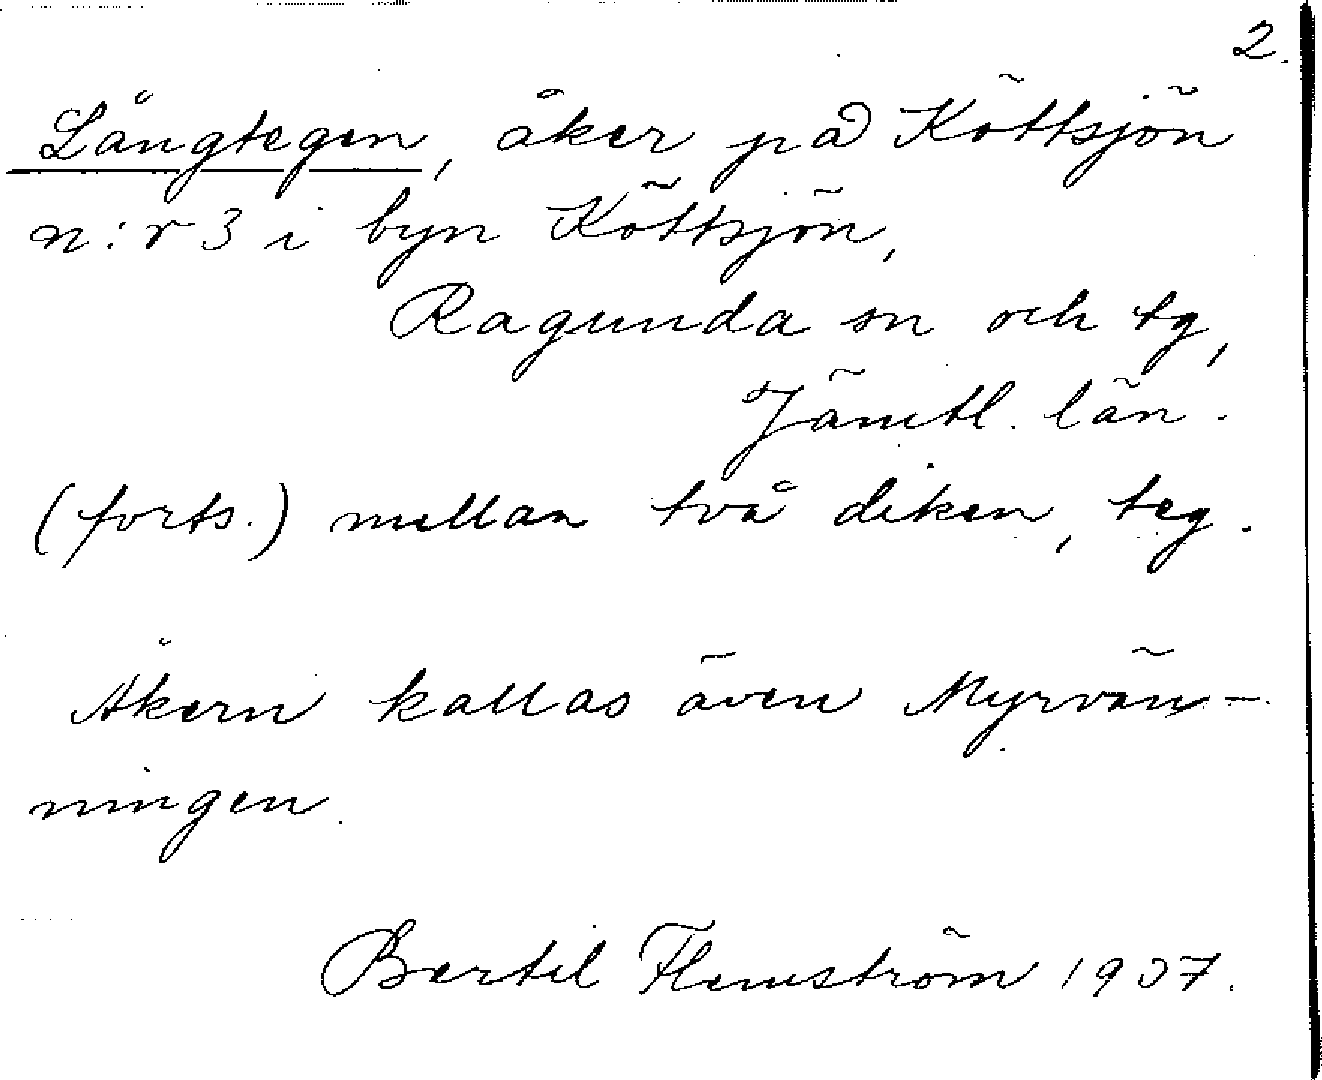 2.
Långtegen, åker på Köttsjön
n:r 3 i byn Köttsjön,
Ragunda sn och tg,
Jämtl. län.
(forts.) mellan två diken, teg.
Åkern kallas även Myrvän-
ningen.
Bertil Flemström 1937.